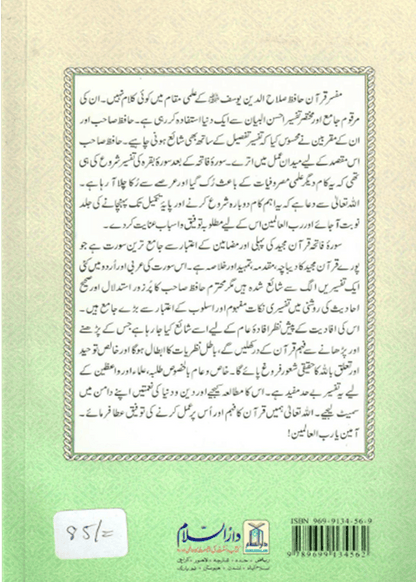 مفسر قرآن حافظ صلاح الدین یوسف ﷾ کے علمی مقام میں کوئی کلام نہیں۔ ان کی
مرقوم جامع اور مختصر تفسیر احسن البیان سے ایک دنیا استفادہ کر رہی ہے۔ حافظ صاحب اور
ان کے مقربین نے محسوس کیا کہ تفسیر تفصیل کے ساتھ بھی شائع ہونی چاہیے۔ حافظ صاحب
اس مقصد کے لیے میدان عمل میں اترے۔ سورۂ فاتحہ کے بعد سورۂ بقرہ کی تفسیر شروع کی ہی
تھی کہ یہ کام دیگر علمی مصروفیات کے باعث رُک گیا اور عرصے سے رُکا چلا آ رہا ہے۔
اللہ تعالیٰ سے دعا ہے کہ یہ اہم کام دوبارہ شروع کرنے اور پایۂ تکمیل تک پہنچانے کی جلد
نوبت آ جائے اور رب العالمین اس کے لیے مطلوبہ توفیق و اسباب عنایت کر دے۔
سورۂ فاتحہ قرآن مجید کی پہلی اور مضامین کے اعتبار سے جامع ترین سورت ہے جو
پورے قرآن مجید کا دیباچہ، مقدمہ، تمہید اور خلاصہ ہے۔ اس سورت کی عربی اور اُردو میں کئی
ایک تفسیریں الگ سے شائع شدہ ہیں مگر محترم حافظ صاحب کا پُرزور استدلال اور صحیح
احادیث کی روشنی میں تفسیری نکات مفہوم اور اسلوب کے اعتبار سے بڑے جامع ہیں۔
اس کی افادیت کے پیش نظر افادۂ عام کے لیے اسے شائع کیا جا رہا ہے جس کے پڑھنے
اور پڑھانے سے فہم قرآن کے در کھلیں گے، باطل نظریات کا ابطال ہوگا اور خالص توحید
اور تعلق باللہ کا حقیقی شعور فروغ پائے گا۔ خاص و عام بالخصوص طلبہ، علماء اور واعظین کے
لیے یہ تفسیر بے حد مفید ہے۔ اس کا مطالعہ کیجیے اور دین و دنیا کی نعمتیں اپنے دامن میں
سمیٹ لیجیے۔ اللہ تعالیٰ ہمیں قرآن کا فہم اور اُس پر عمل کرنے کی توفیق عطا فرمائے۔
آمین یا رب العالمین!
85/=
دارُالسلام
ISBN 969-9134-56-9
9789699134562